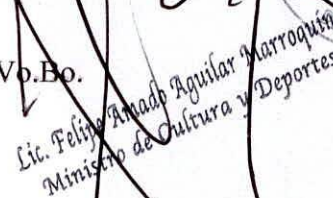 Vo.Bo.
Lic. Felipe Amado Aguilar Marroquín
Ministro de Cultura y Deportes